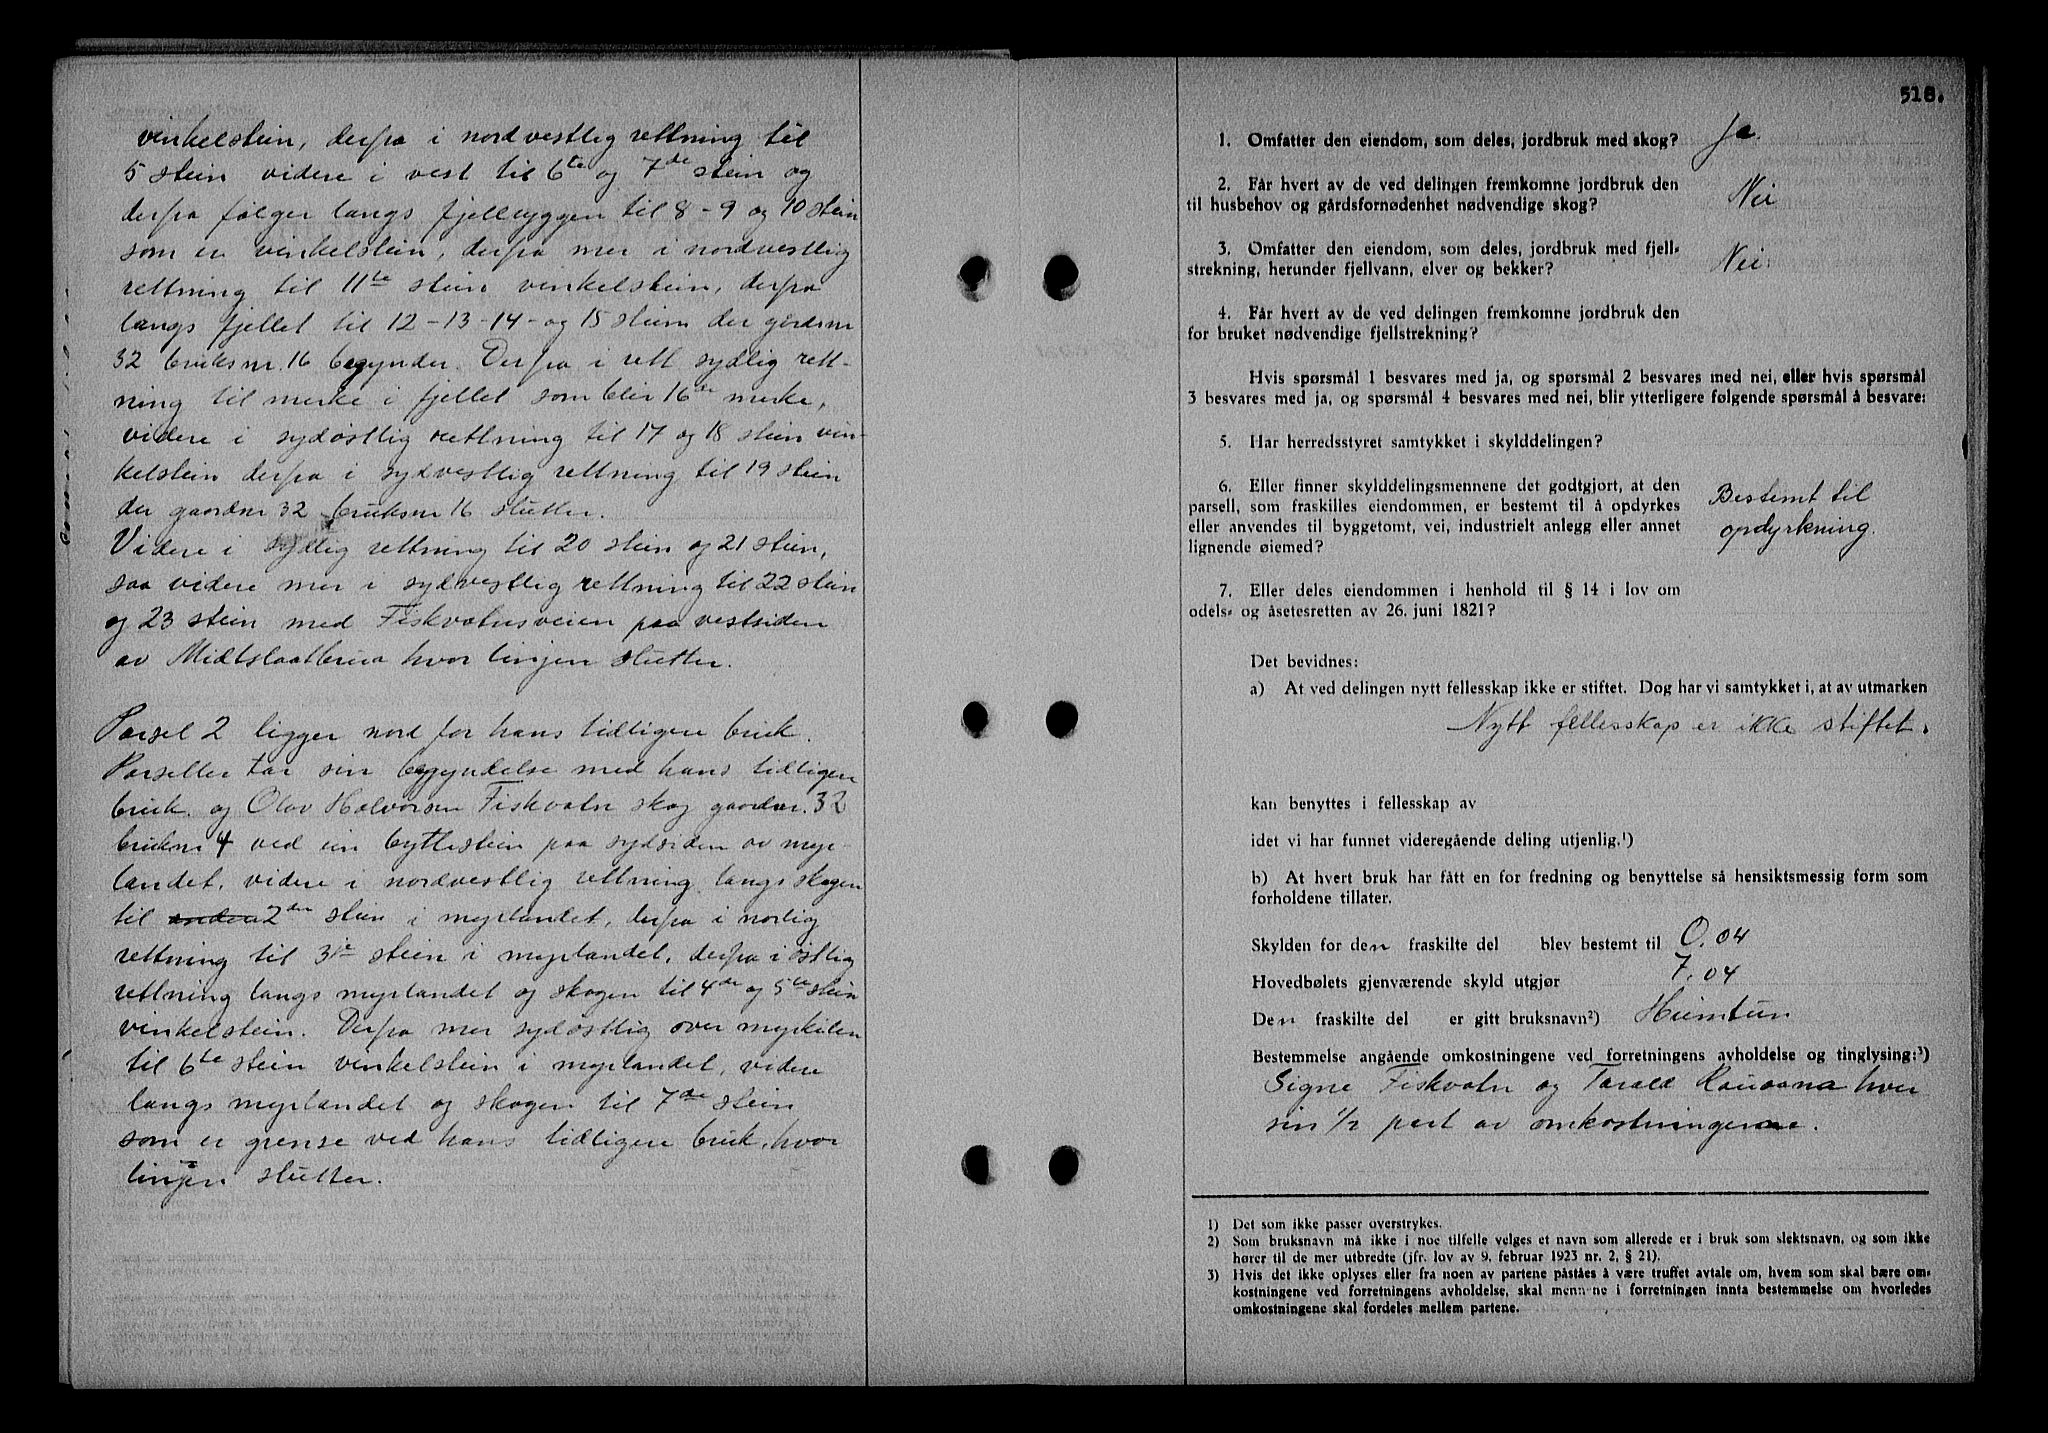 vinkelstein, derfra i nordvestlig rettning til
5 stein videre i vest til 6te og 7de stein og
derfra følger langs fjellryggen til 8-9 og 10 stein
som er vinkelstein, derfra mer i nordvestlig
rettning til 11te stein vinkelstein, derfra
langs fjellet til 12-13-14- og 15 stein der gårdsnr
32 bruksnr. 16 begynder. Derfra i rett sydlig rett-
ning til merke i fjellet som blir 16de merke,
videre i sydöstlig rettning til 17 og 18 stein vin-
kelstein derfra i sydvestlig rettning til 19 stein
der gaardnr 32 bruksnr 16 slutter.
Videre i sydlig rettning til 20 stein og 21 stein,
saa videre mer i sydvestlig rettning til 22 stein
og 23 stein med Fiskvatnsveien paa vestsiden
av Midtslaatbrua hvor linjen slutter.
Parsel 2 ligger nord for hans tidligere bruk.
Parsellen tar sin begyndelse med hans tidligere
bruk og Olav Halvorsen Fiskvatn skog gaardnr. 32
bruksnr 4 ved ein byttestein paa sydsiden av myr-
landet, videre i nordvestlig rettning langs skogen
til 2den stein i myrlandet, derfra i norlig
rettning til 3je stein i myrlandet, derfra i östlig
rettning langs myrlandet og skogen til 4de og 5te stein
vinkelstein. Derfra mer sydöstlig over myrkilen
til 6te stein vinkelstein i myrlandet, videre
langs myrlandet og skogen til 7de stein
som er grense ved hans tidligere bruk, hvor
linjen slutter.
518.
1. Omfatter den eiendom, som deles, jordbruk med skog? Ja.
2. Får hvert av de ved delingen fremkomne jordbruk den
til husbehov og gårdsfornødenhet nødvendige skog? Nei
3. Omfatter den eiendom, som deles, jordbruk med fjell-
strekning, herunder fjellvann, elver og bekker? Nei
4. Får hvert av de ved delingen fremkomne jordbruk den
for bruket nødvendige fjellstrekning?
Hvis spørsmål 1 besvares med ja, og spørsmål 2 besvares med nei, eller hvis spørsmål
3 besvares med ja, og spørsmål 4 besvares med nei, blir ytterligere følgende spørsmål å besvare:
5. Har herredsstyret samtykket i skylddelingen?
6. Eller finner skylddelingsmennene det godtgjort, at den
parsell, som fraskilles eiendommen, er bestemt til å opdyrkes Bestemt til
eller anvendes til byggetomt, vei, industrielt anlegg eller annet opdyrkning.
lignende øiemed?
7. Eller deles eiendommen i henhold til § 14 i lov om
odels- og åsetesretten av 26. juni 1821?
Det bevidnes:
a) At ved delingen nytt fellesskap ikke er stiftet. Dog har vi samtykket i, at av utmarken
Nytt fellesskap er ikke stiftet.
kan benyttes i fellesskap av
idet vi har funnet videregående deling utjenlig.¹)
b) At hvert bruk har fått en for fredning og benyttelse så hensiktsmessig form som
forholdene tillater.
Skylden for den fraskilte del blev bestemt til 0.04
Hovedbølets gjenværende skyld utgjør 7.04
Den fraskilte del er gitt bruksnavn²) Heimtun
Bestemmelse angående omkostningene ved forretningens avholdelse og tinglysing:³)
Signe Fiskvatn og Tarald hver
sin 1/2 part av omkostningene.
1) Det som ikke passer overstrykes.
2) Som bruksnavn må ikke i noe tilfelle velges et navn som allerede er i bruk som slektsnavn, og som ikke
hører til de mer utbredte (jfr. lov av 9. februar 1923 nr. 2, § 21).
3) Hvis det ikke oplyses eller fra noen av partene påståes å være truffet avtale om, hvem som skal bære om-
kostningene ved forretningens avholdelse, skal mennene i forretningen innta bestemmelse om hvorledes
omkostningene skal fordeles mellem partene.